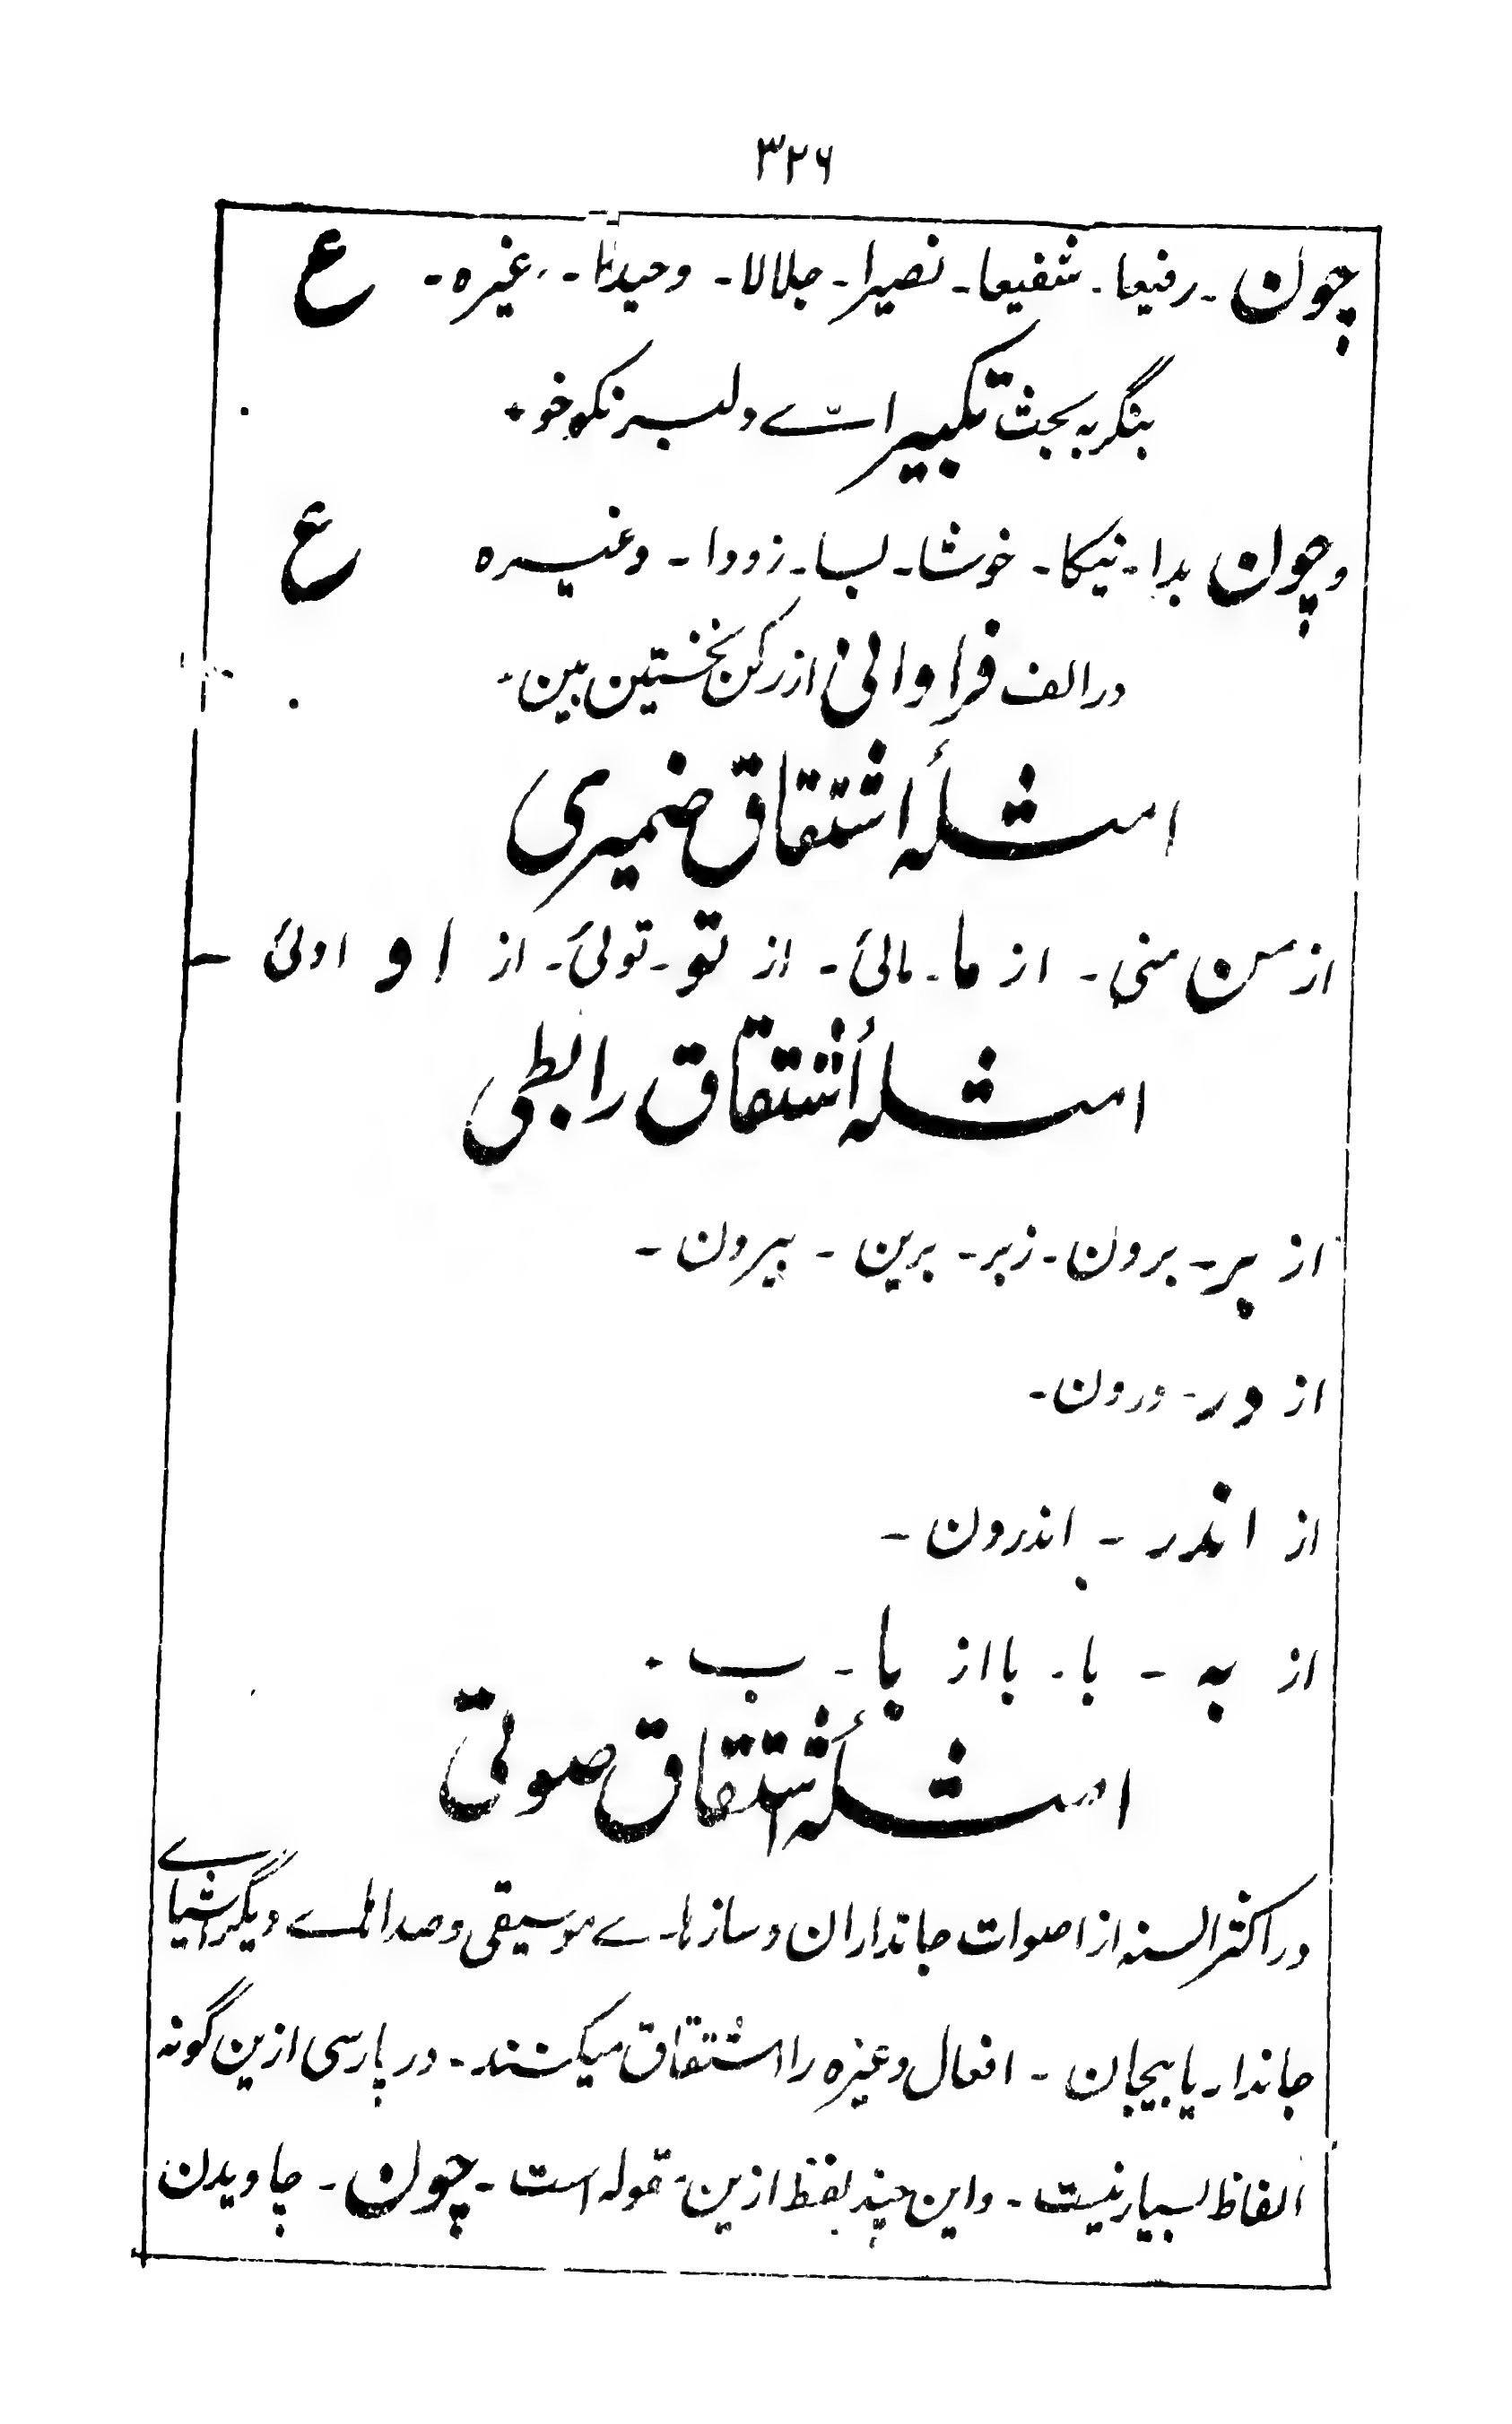 ۳۲۶
چون ۔ رفیعا ۔ شفیعا ۔ نصیرا ۔ جلالا ۔ وحیدا ۔ وغیره ۔ ع
بنگر به بحث تکبیر اے دلبر نکو خو ۔
و چون بدا ۔ نیکا ۔ خوشا ۔ بسا ۔ زودا ۔ وغیره ع
در الف فراوانی از رکن نخستین بین ۔
امثلۀ اشتقاق ضمیری
از من منی ۔ از ما ۔ مائی ۔ از تو ۔ توئی ۔ از او اوئی ۔
امثلۀ اشتقاق رابطی
از بر ۔ برون ۔ زبر ۔ برین ۔ بیرون ۔
از در ۔ درون ۔
از اندر ۔ اندرون ۔
از به ۔ با ۔ با از با ۔ ب ۔
امثلۀ اشتقاق صوتی
در اکثر السنه از اصوات جانداران و سازهاے موسیقی و صداهاے دیگر اشیاے
جاندار یا بیجان ۔ افعال وغیره را اشتقاق میکنند ۔ در پارسی ازین گونه
الفاظ بسیار نیست ۔ و این چند لفظ ازین مقوله است ۔ چون ۔ چاویدن